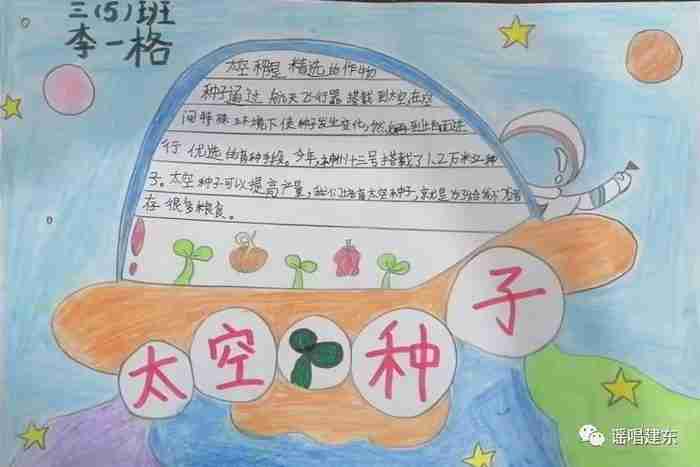 三(5)班
李一格
太空种是精选的作物
种子通过航天飞行器搭载到太空,在空
间特殊环境下使种子发生变化,然 到地面进
行优选的育种手段。今年,神州十三号搭载了1.2万粒 种
子。太空种子可以提高产量,我们 育太空种子,就是为
存很多粮食。
太空种子
谣唱建东